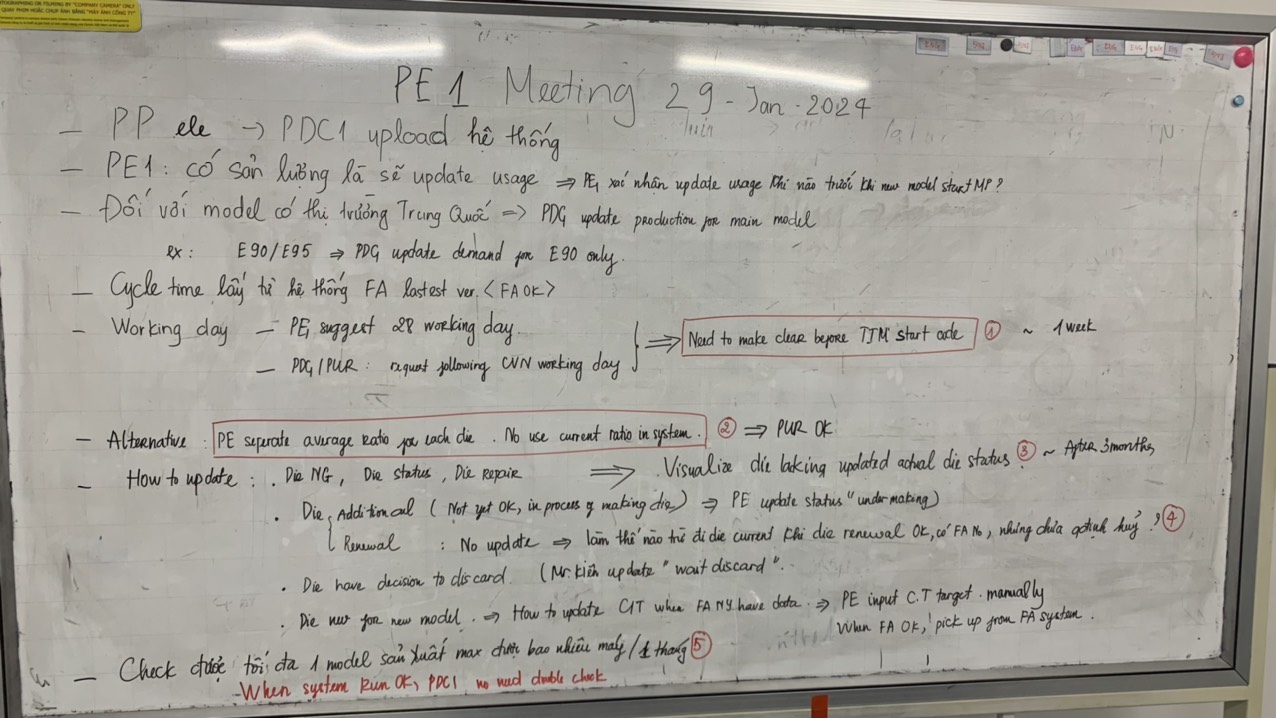 PHOTOGRAPHING OR FILMING BY "COMPANY CAMERA" ONLY
QUAY PHIM HOẶC CHỤP ẢNH BẰNG "MÁY ẢNH CÔNG TY"
PE 1 Meeting 29 - Jan - 2024
- PP ele → PDC1 upload hệ thống
- PE1: có sản lượng là sẽ update usage ⇒ PE1 xác nhận update usage khi nào trước khi new model start MP?
- Đối với model có thị trường Trung Quốc ⇒ PDG update production for main model
ex: E90/E95 ⇒ PDG update demand for E90 only.
- Cycle time lấy từ hệ thống FA lastest ver. <FA OK>
- Working day - PE1 suggest 28 working day.
- PDG/PUR: request following CVN working day
⇒ Need to make clear before TTM start code ① ~ 1 week
- Alternative: PE seperate average Ratio for each die. No use current ratio in system. ② ⇒ PUR OK
- How to update: . Die NG, Die status, Die Repair ⇒ Visualize die lacking updated actual die status ③ ~ After 3 months
. Die Additional (Not yet OK, in process of making die) ⇒ PE update status "under making)
Renewal: No update ⇒ làm thế nào trừ đi die current khi die renewal OK, có FA No, nhưng chưa qđịnh huỷ? ④
. Die have decision to discard. (Mr. Kiên update "wait discard".
. Die new for new model. ⇒ How to update C/T when FA NY have data. ⇒ PE input C.T target. manually
When FA OK, pick up from FA system.
- Check được tối đa 1 model sản xuất max được bao nhiêu máy/1 tháng ⑤
- When system run OK, PDC1 no need double check